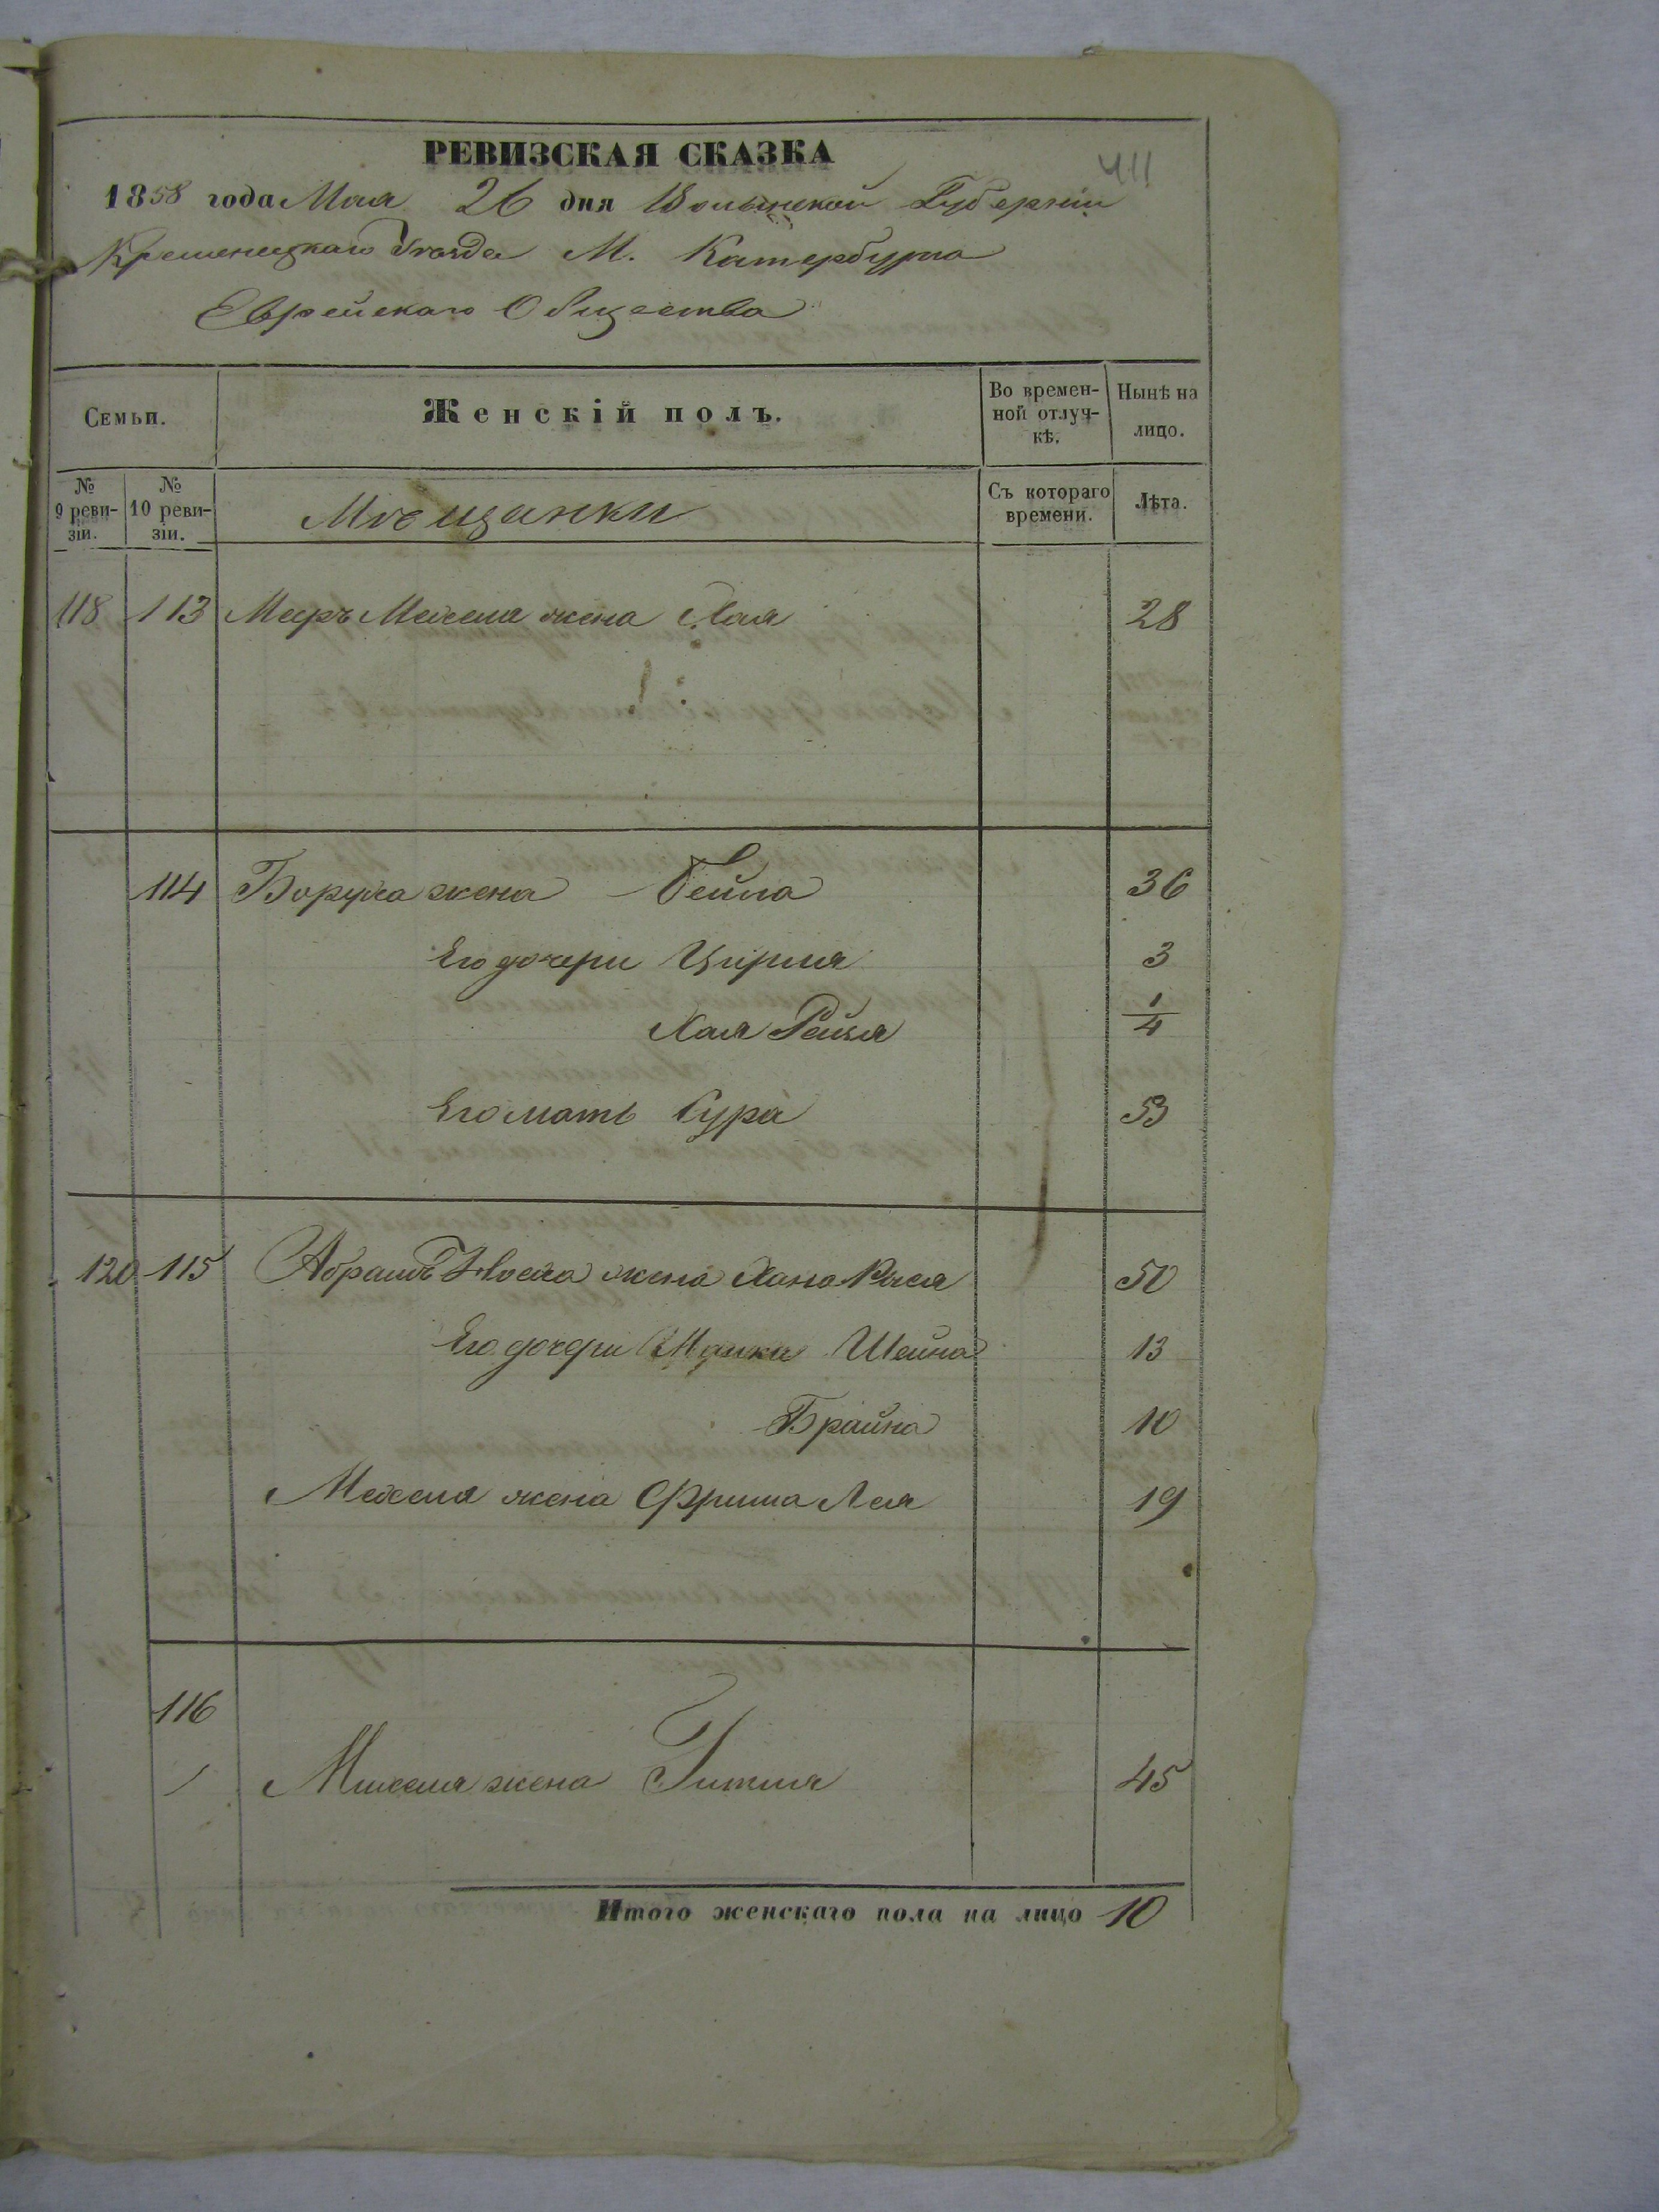 РЕВИЗСКАЯ СКАЗКА
411
1858 года Мая 26 дня Волынской Губерніи
Кременецкаго Уѣзда М. Катербурга
Еврейскаго Общества
Семьи. Женскій полъ. Во времен-ной отлуч-кѣ. Нынѣ на лицо.
№ 9 реви-зіи. № 10 реви-зіи. Мѣщанки Съ котораго времени. Лѣта.
118 113 Меръ Мехеля жена Хая 28
114 Боруха жена Бейла 36
Его дочери Цирля 3
Хая Рейзя 1/4
Его мать Сура 53
120 115 Абрамъ жена Хана Рися 50
Его дочери Шейна 13
Брайна 10
Мехеля жена Фрима Лея 19
116
Михеля жена Гитля 45
Итого женскаго пола на лицо 10